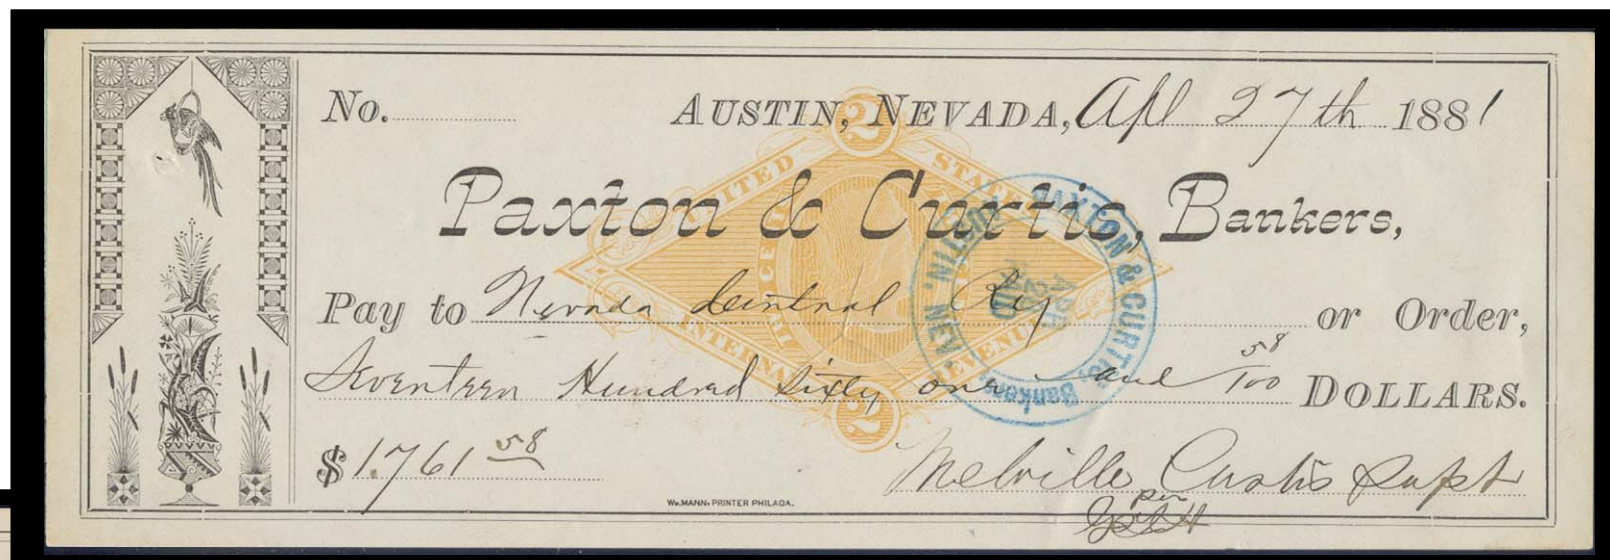 No. AUSTIN, NEVADA, Apl 27th 1881
Paxton & Curtis, Bankers,
Pay to Nevada Central Ry or Order,
Seventeen Hundred Sixty one and 58/100 DOLLARS.
$ 1.761 58
Melville Curtis Supt
per
WM. MANN, PRINTER PHILADA.
2
UNITED STATES
INTERNAL REVENUE
2
PAXTON & CURTIS, Bankers, AUSTIN, NEV.
APR
28
PAID